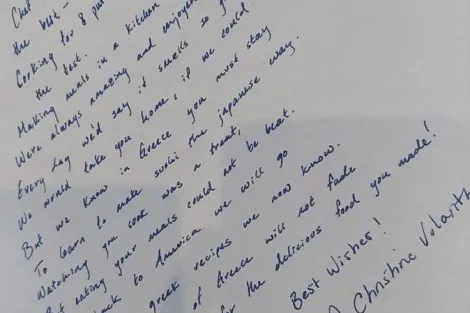 Chef
the best —
Cooking for 8
the test.
Making meals in a kitchen
Were always amazing and
Every day we'd say it smells so
We would take you home, if we could.
But we know in Greece you must stay
To learn to make sushi the japanese way.
Watching you cook was a treat,
But eating your meals could not be beat.
back to America we will go
greek recipes we now know.
of Greece will not fade
for the delicious food you made!
Best Wishes!
Christine